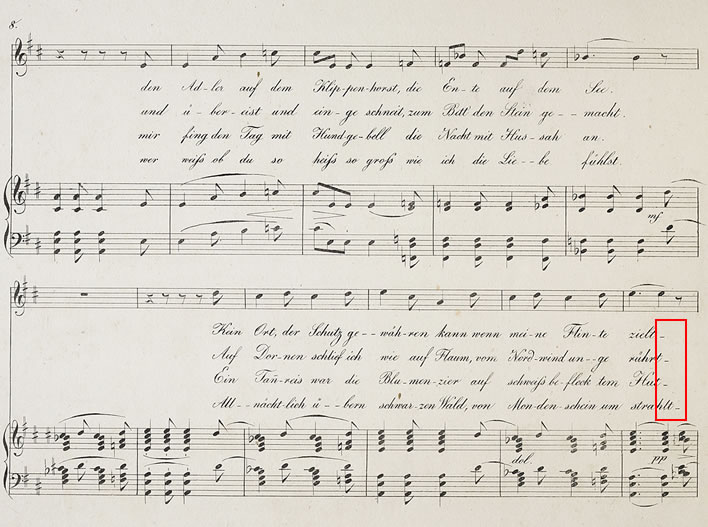 8.
den Ad-ler auf dem Klip-pen-horst, die En-te auf dem See.
und ü-ber-eist und ein-ge-schneit, zum Bett den Stein ge--macht.
mir fing den Tag mit Hundgebell die Nacht mit Hus-sah an.
wer weiß ob du so heiß so groß wie ich die Lie--be fühlst.
mf
Kein Ort, der Schutz ge--wäh-ren kann wenn mei-ne Flin-te zielt-
Auf Dor-nen schlief ich wie auf Flaum, vom Nord-wind un--ge rührt-
Ein Tañ-reis war die Blu-men-zier auf schweiß be-fleck tem Hut-
All--nächt-lich ü--bern schwar-zen Wald, von Mon-den-schein um strahlt-
dol. pp